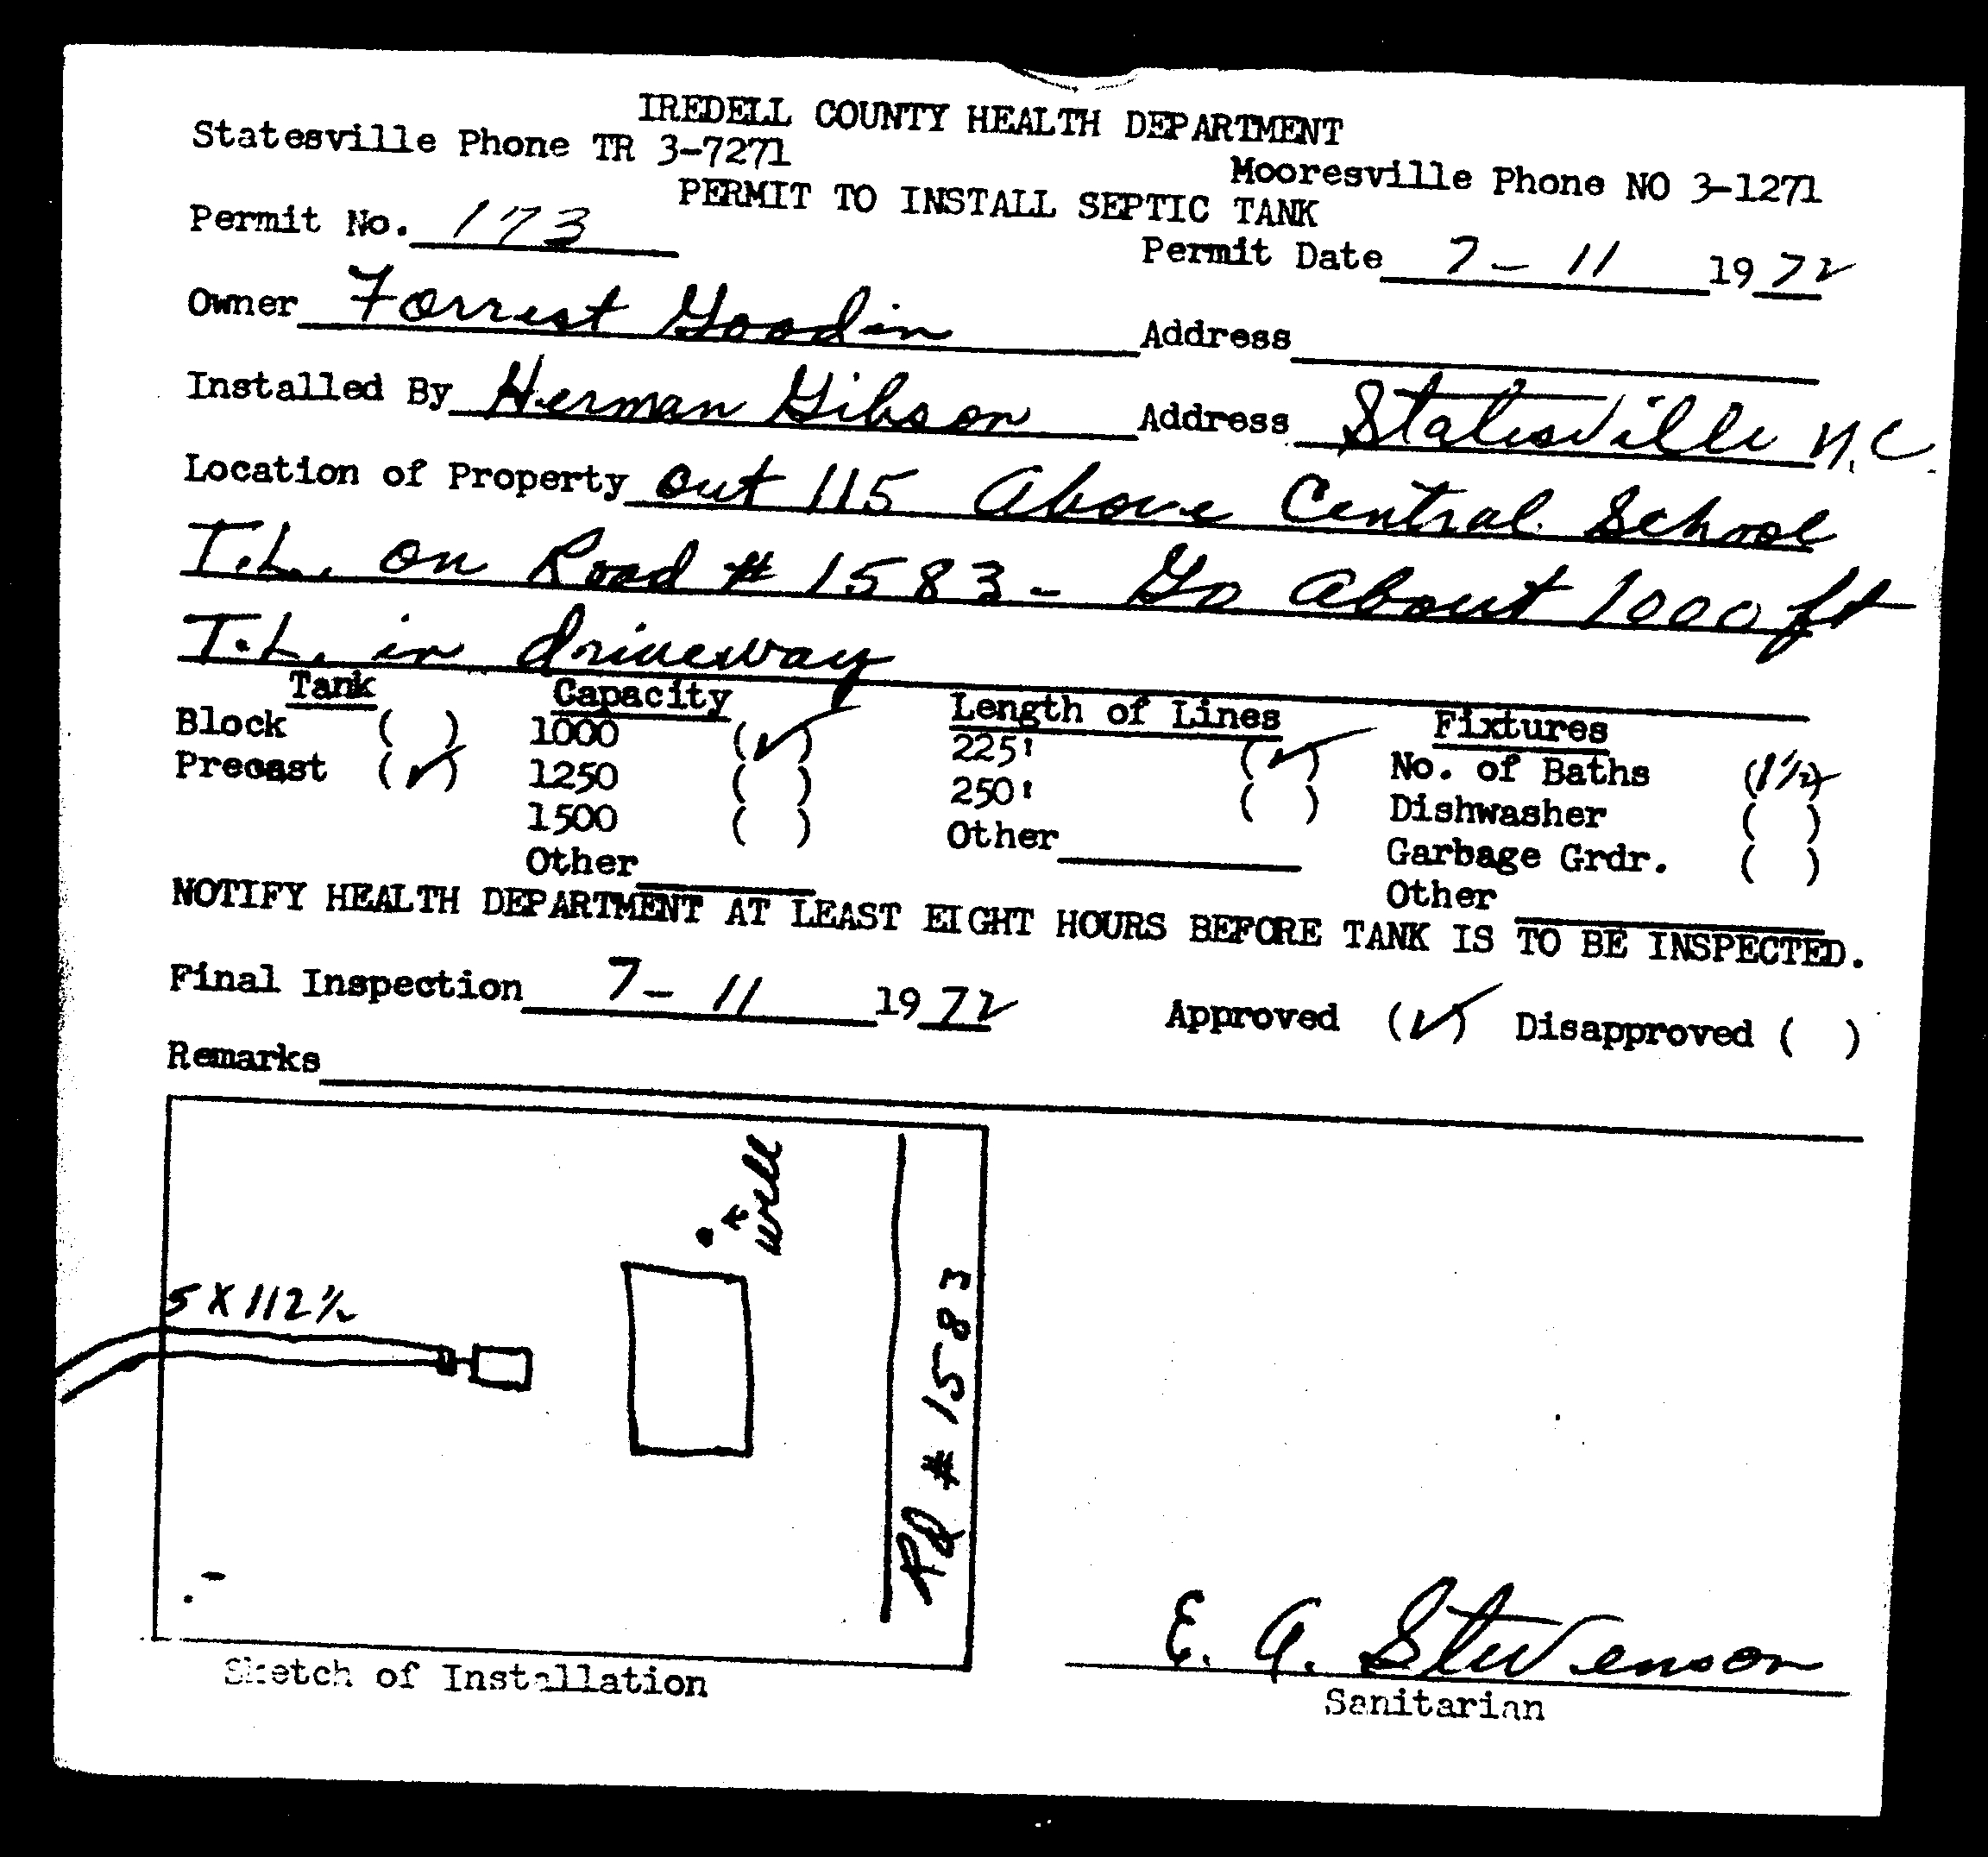 IREDELL COUNTY HEALTH DEPARTMENT
Statesville Phone TR 3-7271
Mooresville Phone NO 3-1271
PERMIT TO INSTALL SEPTIC TANK
Permit No. 173
Permit Date 7-11 1972
Owner Forrest Goodin Address
Installed By Herman Gibson Address Statesville N.C.
Location of Property out 115 Above Central School
T.L. on Road # 1583 - Go About 1000 ft
T.L. in driveway
Tank Capacity Length of Lines Fixtures
Block ( ) 1000 (✓) 225' (✓) No. of Baths (1½)
Precast (✓) 1250 ( ) 250' ( ) Dishwasher ( )
1500 ( ) Other Garbage Grdr. ( )
Other Other
NOTIFY HEALTH DEPARTMENT AT LEAST EIGHT HOURS BEFORE TANK IS TO BE INSPECTED.
Final Inspection 7-11 1972 Approved (✓) Disapproved ( )
Remarks
well
5 X 112½
Rd # 1583
E. A. Stevenson
Sketch of Installation
Sanitarian